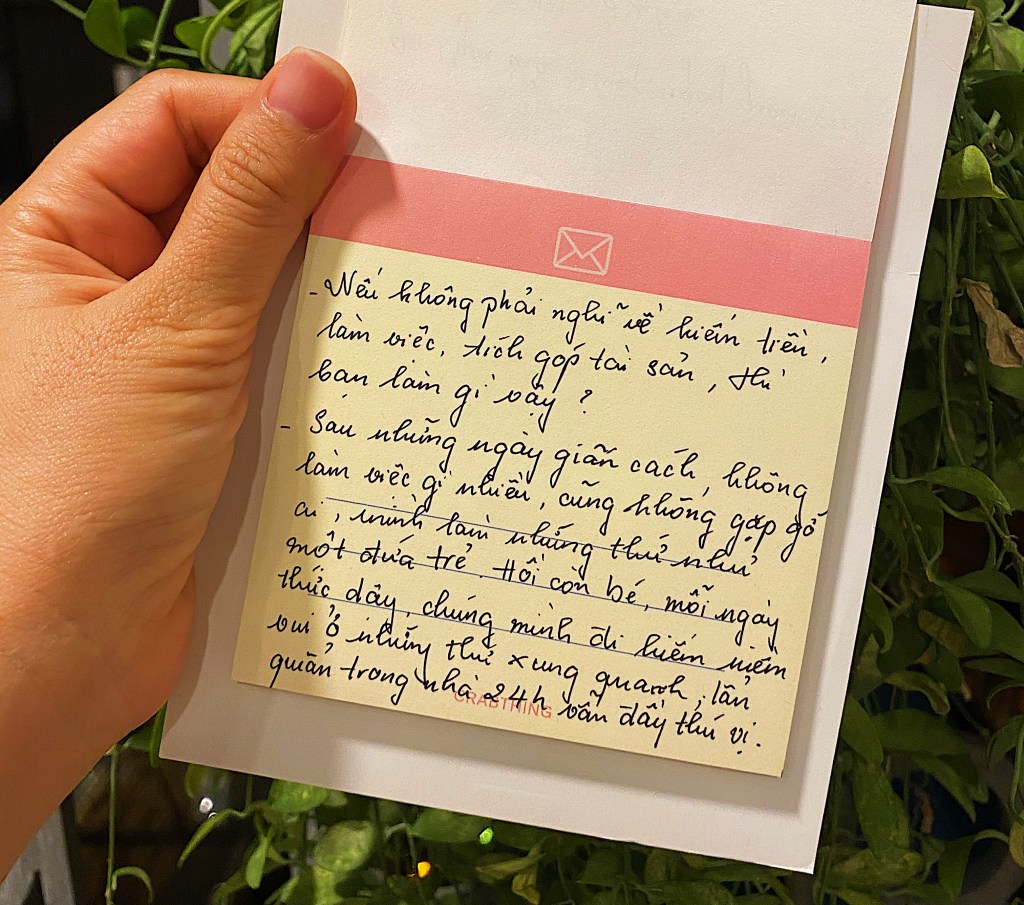 - Nếu không phải nghĩ về kiếm tiền,
làm việc, tích góp tài sản, thì
bạn làm gì vậy ?
- Sau những ngày giãn cách, không
làm việc gì nhiều, cũng không gặp gỡ
ai, mình làm những thứ như
một đứa trẻ. Hồi còn bé, mỗi ngày
thức dậy, chúng mình đi kiếm niềm
vui ở những thứ xung quanh, lẩn
quẩn trong nhà 24h vẫn đầy thú vị.
CRABTHING